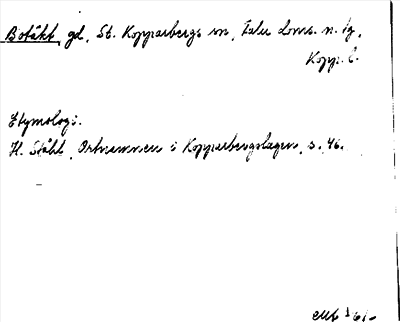 Botäkt, gd, St. Kopparbergs sn, Falu doms. n. tg,
Kopp. l.
Etymologi:
H. Ståhl, Ortnamnen i Kopparbergslagen, s. 46.